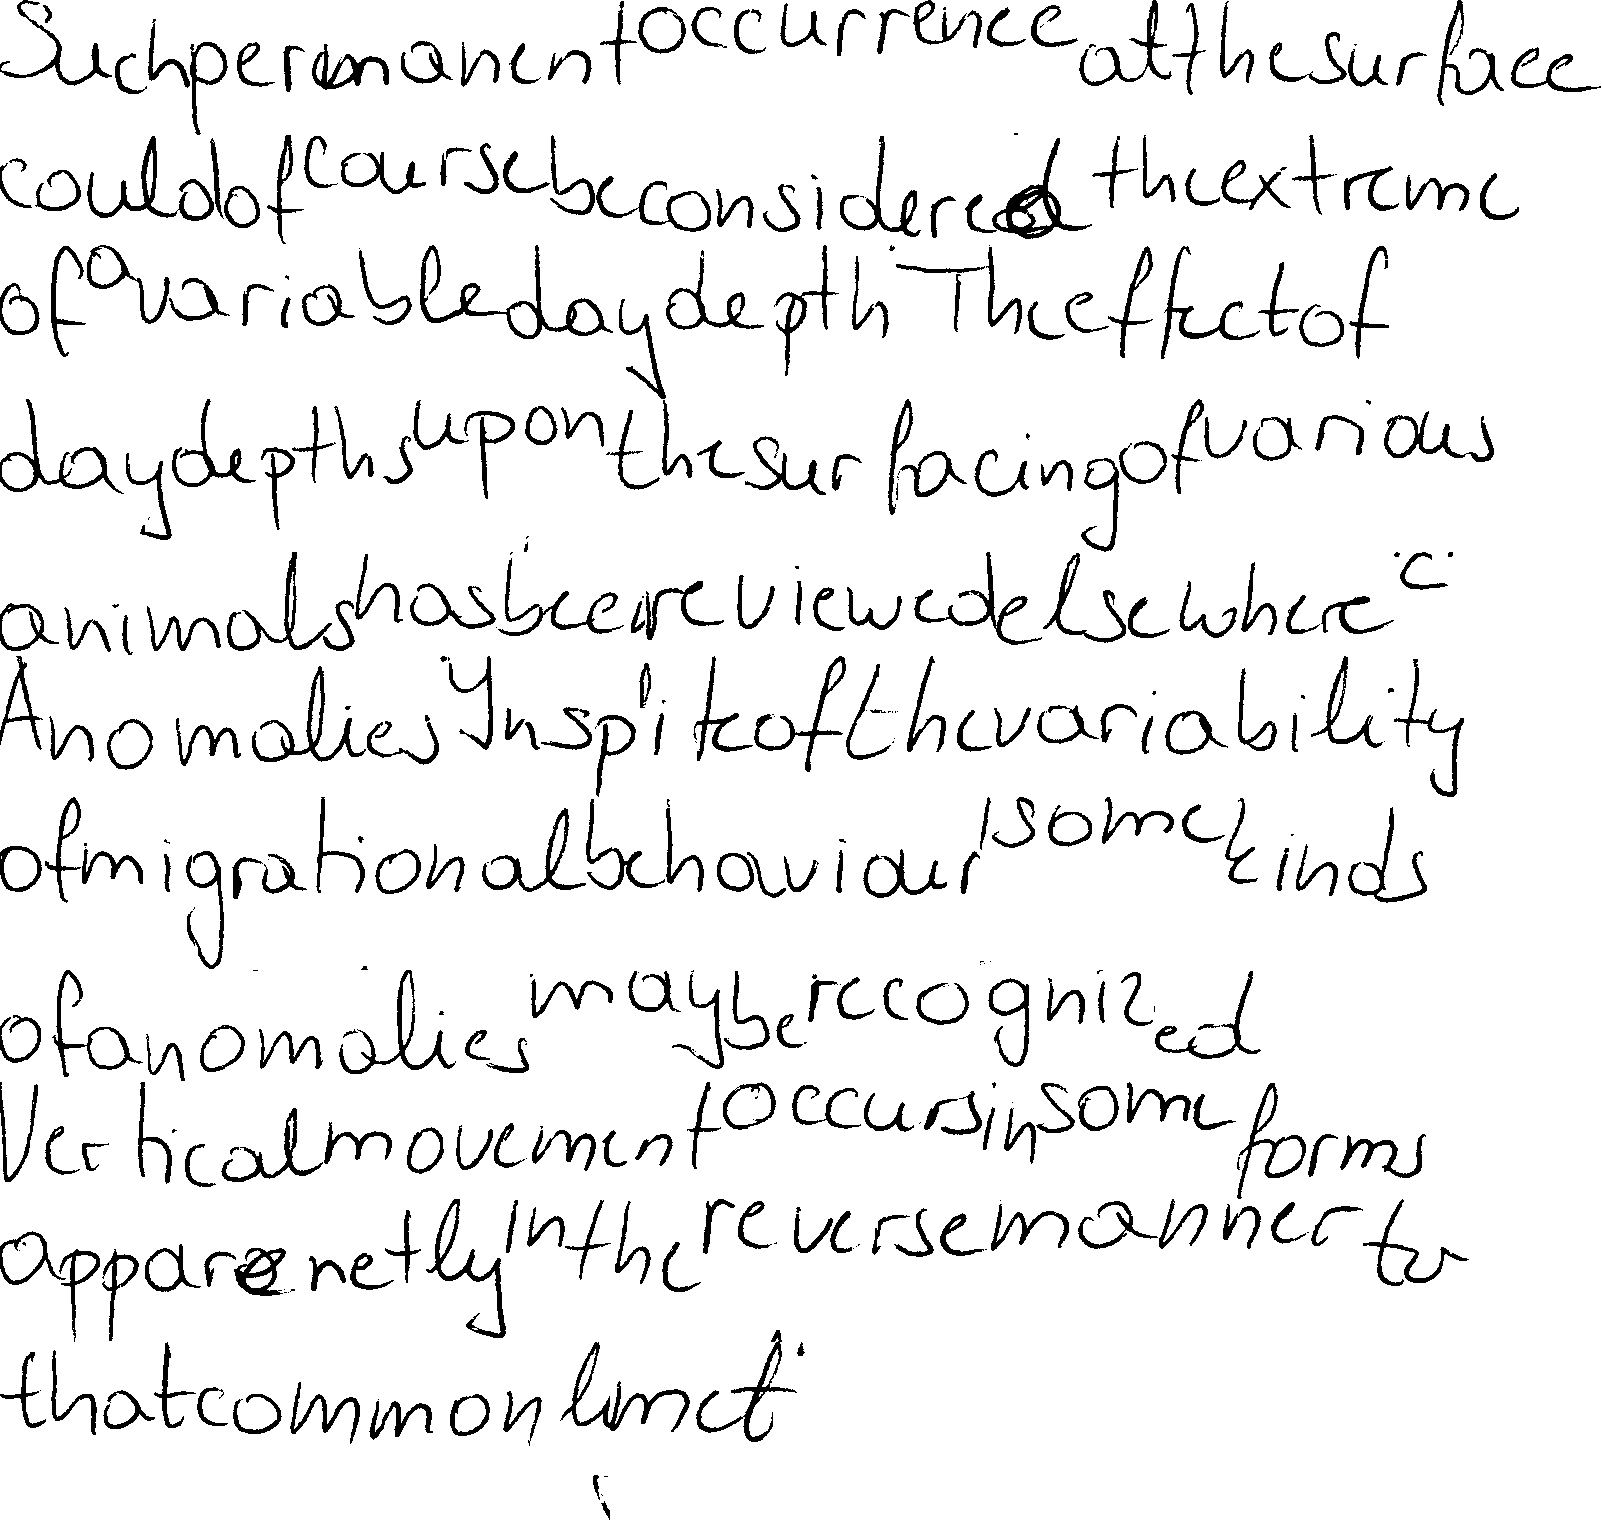 Such permanent occurrence at the surface
could of course be considered the extreme
of a variable day depth. The effect of
day depths upon the surfacing of various
animals has been reviewed elsewhere. C.
Anomalies In spite of the variability
of migrational behaviour, some kinds
of anomalies may be recognized
Vertical movement occurs in some forms
apparenetly in the reverse manner to
that common